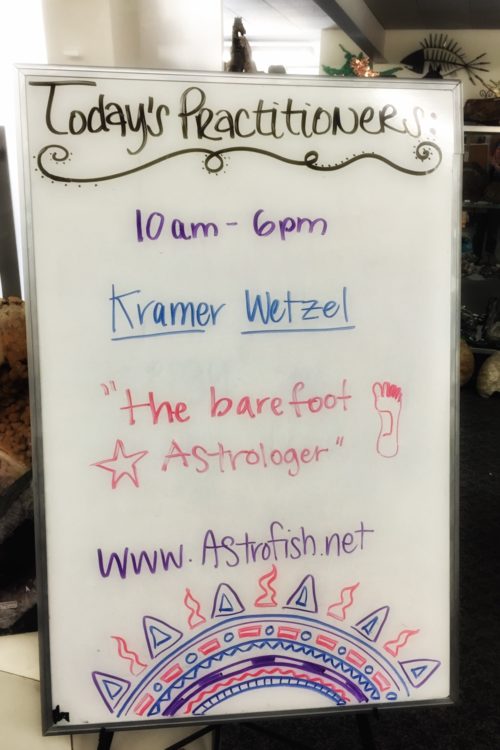 Today's Practitioners:
10am - 6pm
Kramer Wetzel
"the barefoot
Astrologer"
www.Astrofish.net